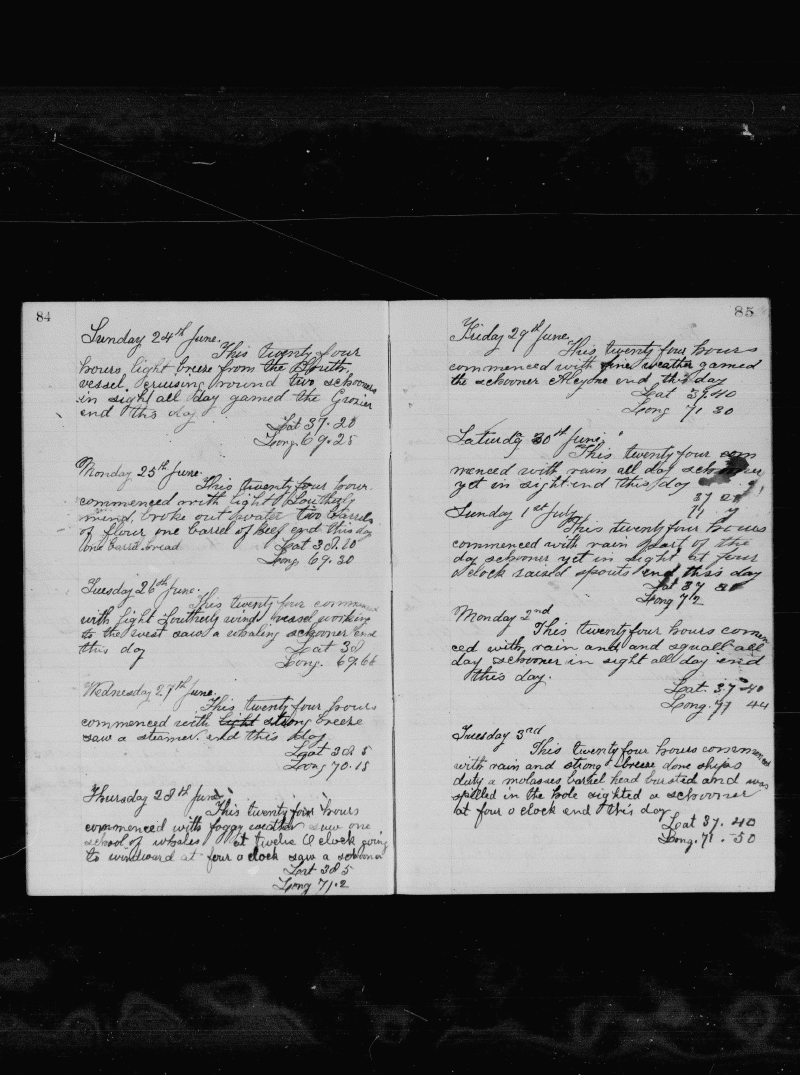 84
Sunday 24th June.
This twenty four
hours, light breeze from the South,
vessel, cruising round two schooners
in sight all day gamed the Grozier
end this day
Lat 37.20
Long. 69.25
Monday 25th June.
This twenty four hour
commenced with light Southerly
wind, broke out water two barrels
of flour one barrel of beef end this day
one barrel bread Lat 38.10
Long. 69.30
Tuesday 26th June.
This twenty four commence
with light Southerly wind vessel working
to the west saw a whaling schooner end
this day Lat 38
Long. 69.66
Wednesday 27th June.
This twenty four hours
commenced with light strong breeze
saw a steamer. end this day
Lat 38 5
Long 70.15
Thursday 28th June
This twenty four hours
commenced with foggy weather saw one
school of whales at twelve O clock going
to windward at four o clock saw a schooner
Lat 38 5
Long 71.2
85
Friday 29th June.
This, twenty four hours
commenced with fine weather gamed
the schooner Alcyone end this day
Lat 37.40
Long 71 30
Saturday 30th June,
This twenty four com
menced with rain all day schooner
yet in sight end this day
37
71
Sunday 1st July
This twenty four hours
commenced with rain part of the
day schooner yet in sight at four
o clock raised spouts end this day
Lat 37
Long 72
Monday 2nd
This twenty four hours commen
ced with rain and and squall all
day schooner in sight all day end
this day.
Lat. 37-40
Long. 71 44
Tuesday 3rd
This twenty four hours commenced
with rain and strong breeze done ships
duty a molasses barrel head bursted and was
spilled in the hole sighted a schooner
at four o clock end this day
Lat 37. 40
Long. 71.-50